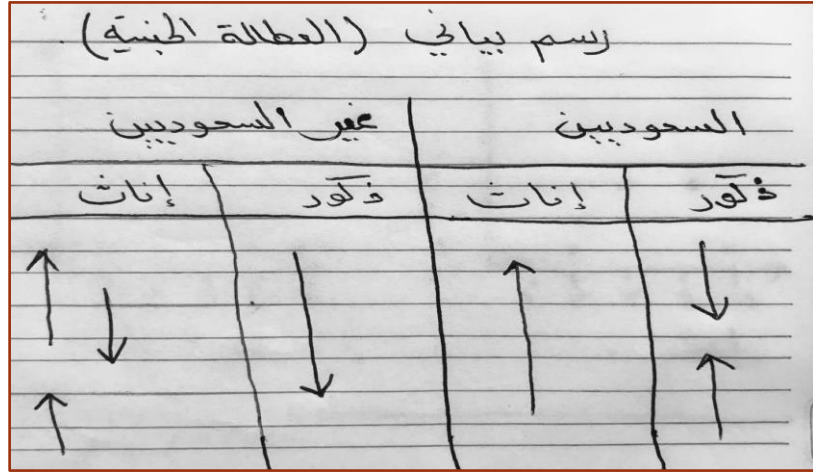 رسم بياني (العطالة الجنسية)
السعوديين غير السعوديين
ذكور إناث ذكور إناث